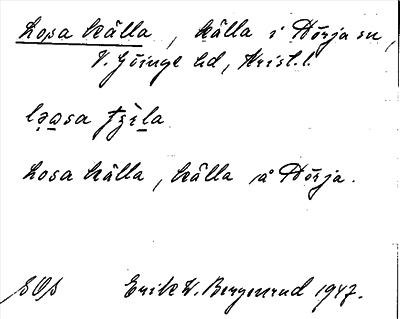 Losa källa, källa i Nörja sn,
V. Göinge hd, Krist. l.
Losa källa, källa å Nörja.
Erik W. Bergenrud 1947.